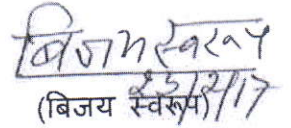 बिजय स्वरूप
23/2/17
(बिजय स्वरूप)